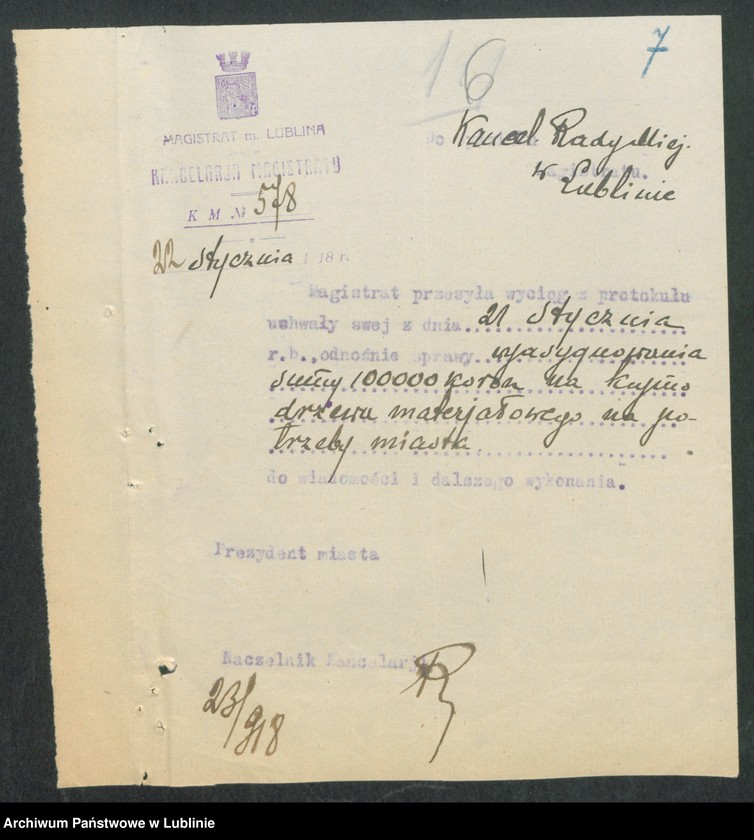 7
6
MAGISTRAT m. LUBLINA
KANCELARJA MAGISTRATU
K M № 578
22 stycznia 1918 r.
Do
Kancel Rady Miej.
Magistratu.
w Lublinie
Magistrat przesyła wyciąg z protokułu
uchwały swej z dnia 21 stycznia
r.b., odnośnie sprawy wyasygnowania
sumy 100000 koron na kupno
drzewa materjałowego na po-
trzeby miasta
do wiadomości i dalszego wykonania.
Prezydent miasta
Naczelnik Kancelarji
23/I 918
Archiwum Państwowe w Lublinie